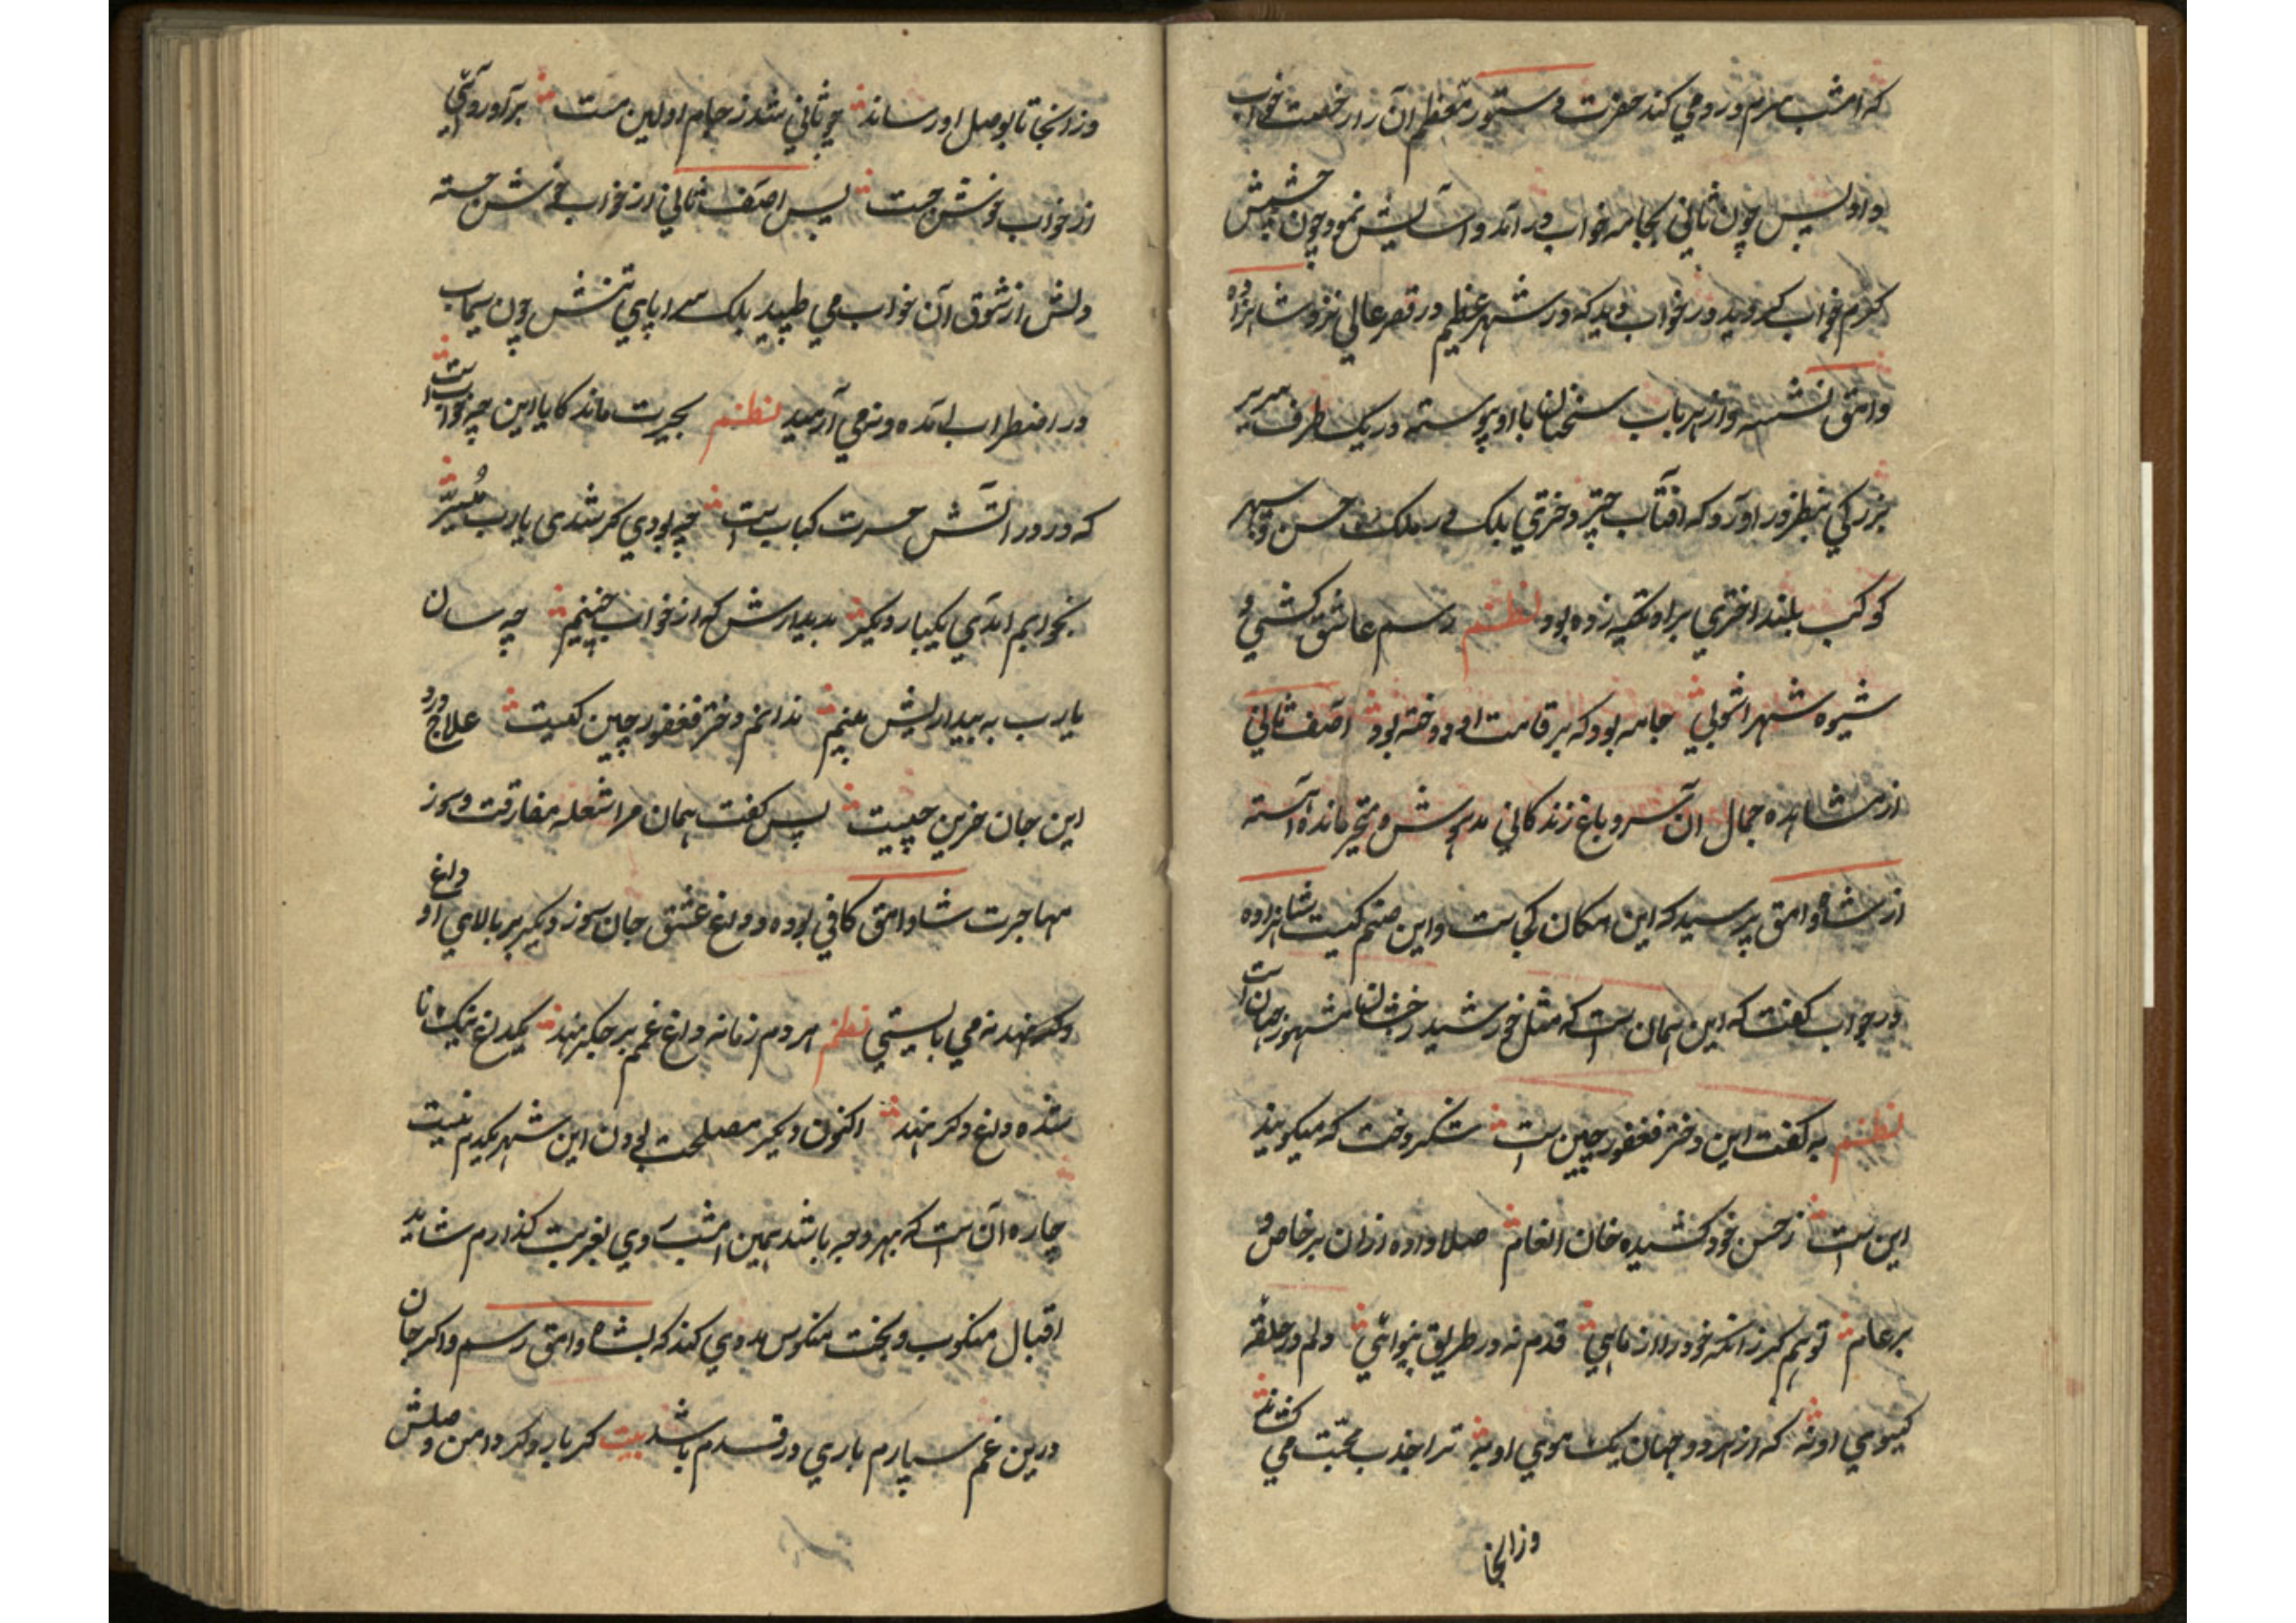 که امشب سرم درد می کند حضرت دستور معظم آن را رخصت خواب
داد پس چون ثانی بجامه خواب در آمد و آسایش نمود چون چشمش
گرم خواب گردید در خواب دید که در شهر عظیم در قصر عالی نزد شاهزاده
وامق نشسته و از هر باب سخنان با او پیوسته در یک طرف سریر
بزرگی بنظر در آورد که آفتاب چتر دختری بلکه در ملک حسن و سپهر
کوکب بلند اختری بر او تکیه زده بود نظم رسم عاشق کشی و
شیوه شهر آشوبی جامه بود که بر قامت او دوخته بود آصف ثانی
از مشاهده جمال آن سرو باغ زندگانی مدهوش و متحیر مانده آهسته
از شاه وامق پرسید که این مکان کجاست و این صنم کیست شاهزاده
در جواب گفت که این همان است که مثل خورشید رخشان مشهور جهان است
نظم به گفت این دختر فغفور چین است شکر دخت که میگویند
این است ز حسن خود کشیده خان انعام صلا داده ز ان بر خاص و
بر عام تو هم گر زانکه خود را از مایی قدم نه در طریق بینوائی دلم در حلقه
گیسوی او نه که از هر دو جهان یک موی او به ترا جذب محبت می کشانم
وز انجا
وز انجا تا بوصل او رساند چو ثانی شد ز جام اولین مست بر آورد وئی
از خواب خوش جست پس آصف ثانی از خواب خوش جسته
دلش از شوق آن خواب می طپید بلکه سراپای تنش چون سیماب
در اضطراب آمده و نمی آرمید نظم بحیرت ماند کایا این چه خوابست
که در در آتش حسرت کبابست چه بودی گر شدی یارب میسر
بخوابم آمدی یکبار دیگر به دیدارش که از خواب چنینم چه سان
یارب به بیداریش بینم ندانم دختر فغفور چین کیست علاج درد
این جان حزین چیست پس گفت همان مرا شعله مفارقت و سوز
مهاجرت شاه وامق کافی بوده و داغ عشق جان سوز دیگر بر بالای او داغ
دگر نهد نه می بایستی نظم هر دم زمانه داغ غمم بر جگر نهد یکداغ نیک نا
شده داغ دگر نهد اکنون دیگر مصلحت بودن این شهر یکدم نیست
چاره آن است که بهر وجه باشد همین امشب روی بغربت گذارم شاید
اقبال منکوب و بخت منکوس مددی کند که بشاه وامق رسم و اگر جان
درین غم سپارم باری در قدم باشد بیت گر بار دگر دامن وصلش